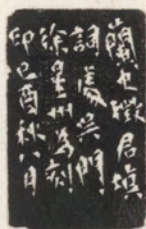 蘭史徵君填
詞處吳門
徐星州為刻
印己酉秋八月